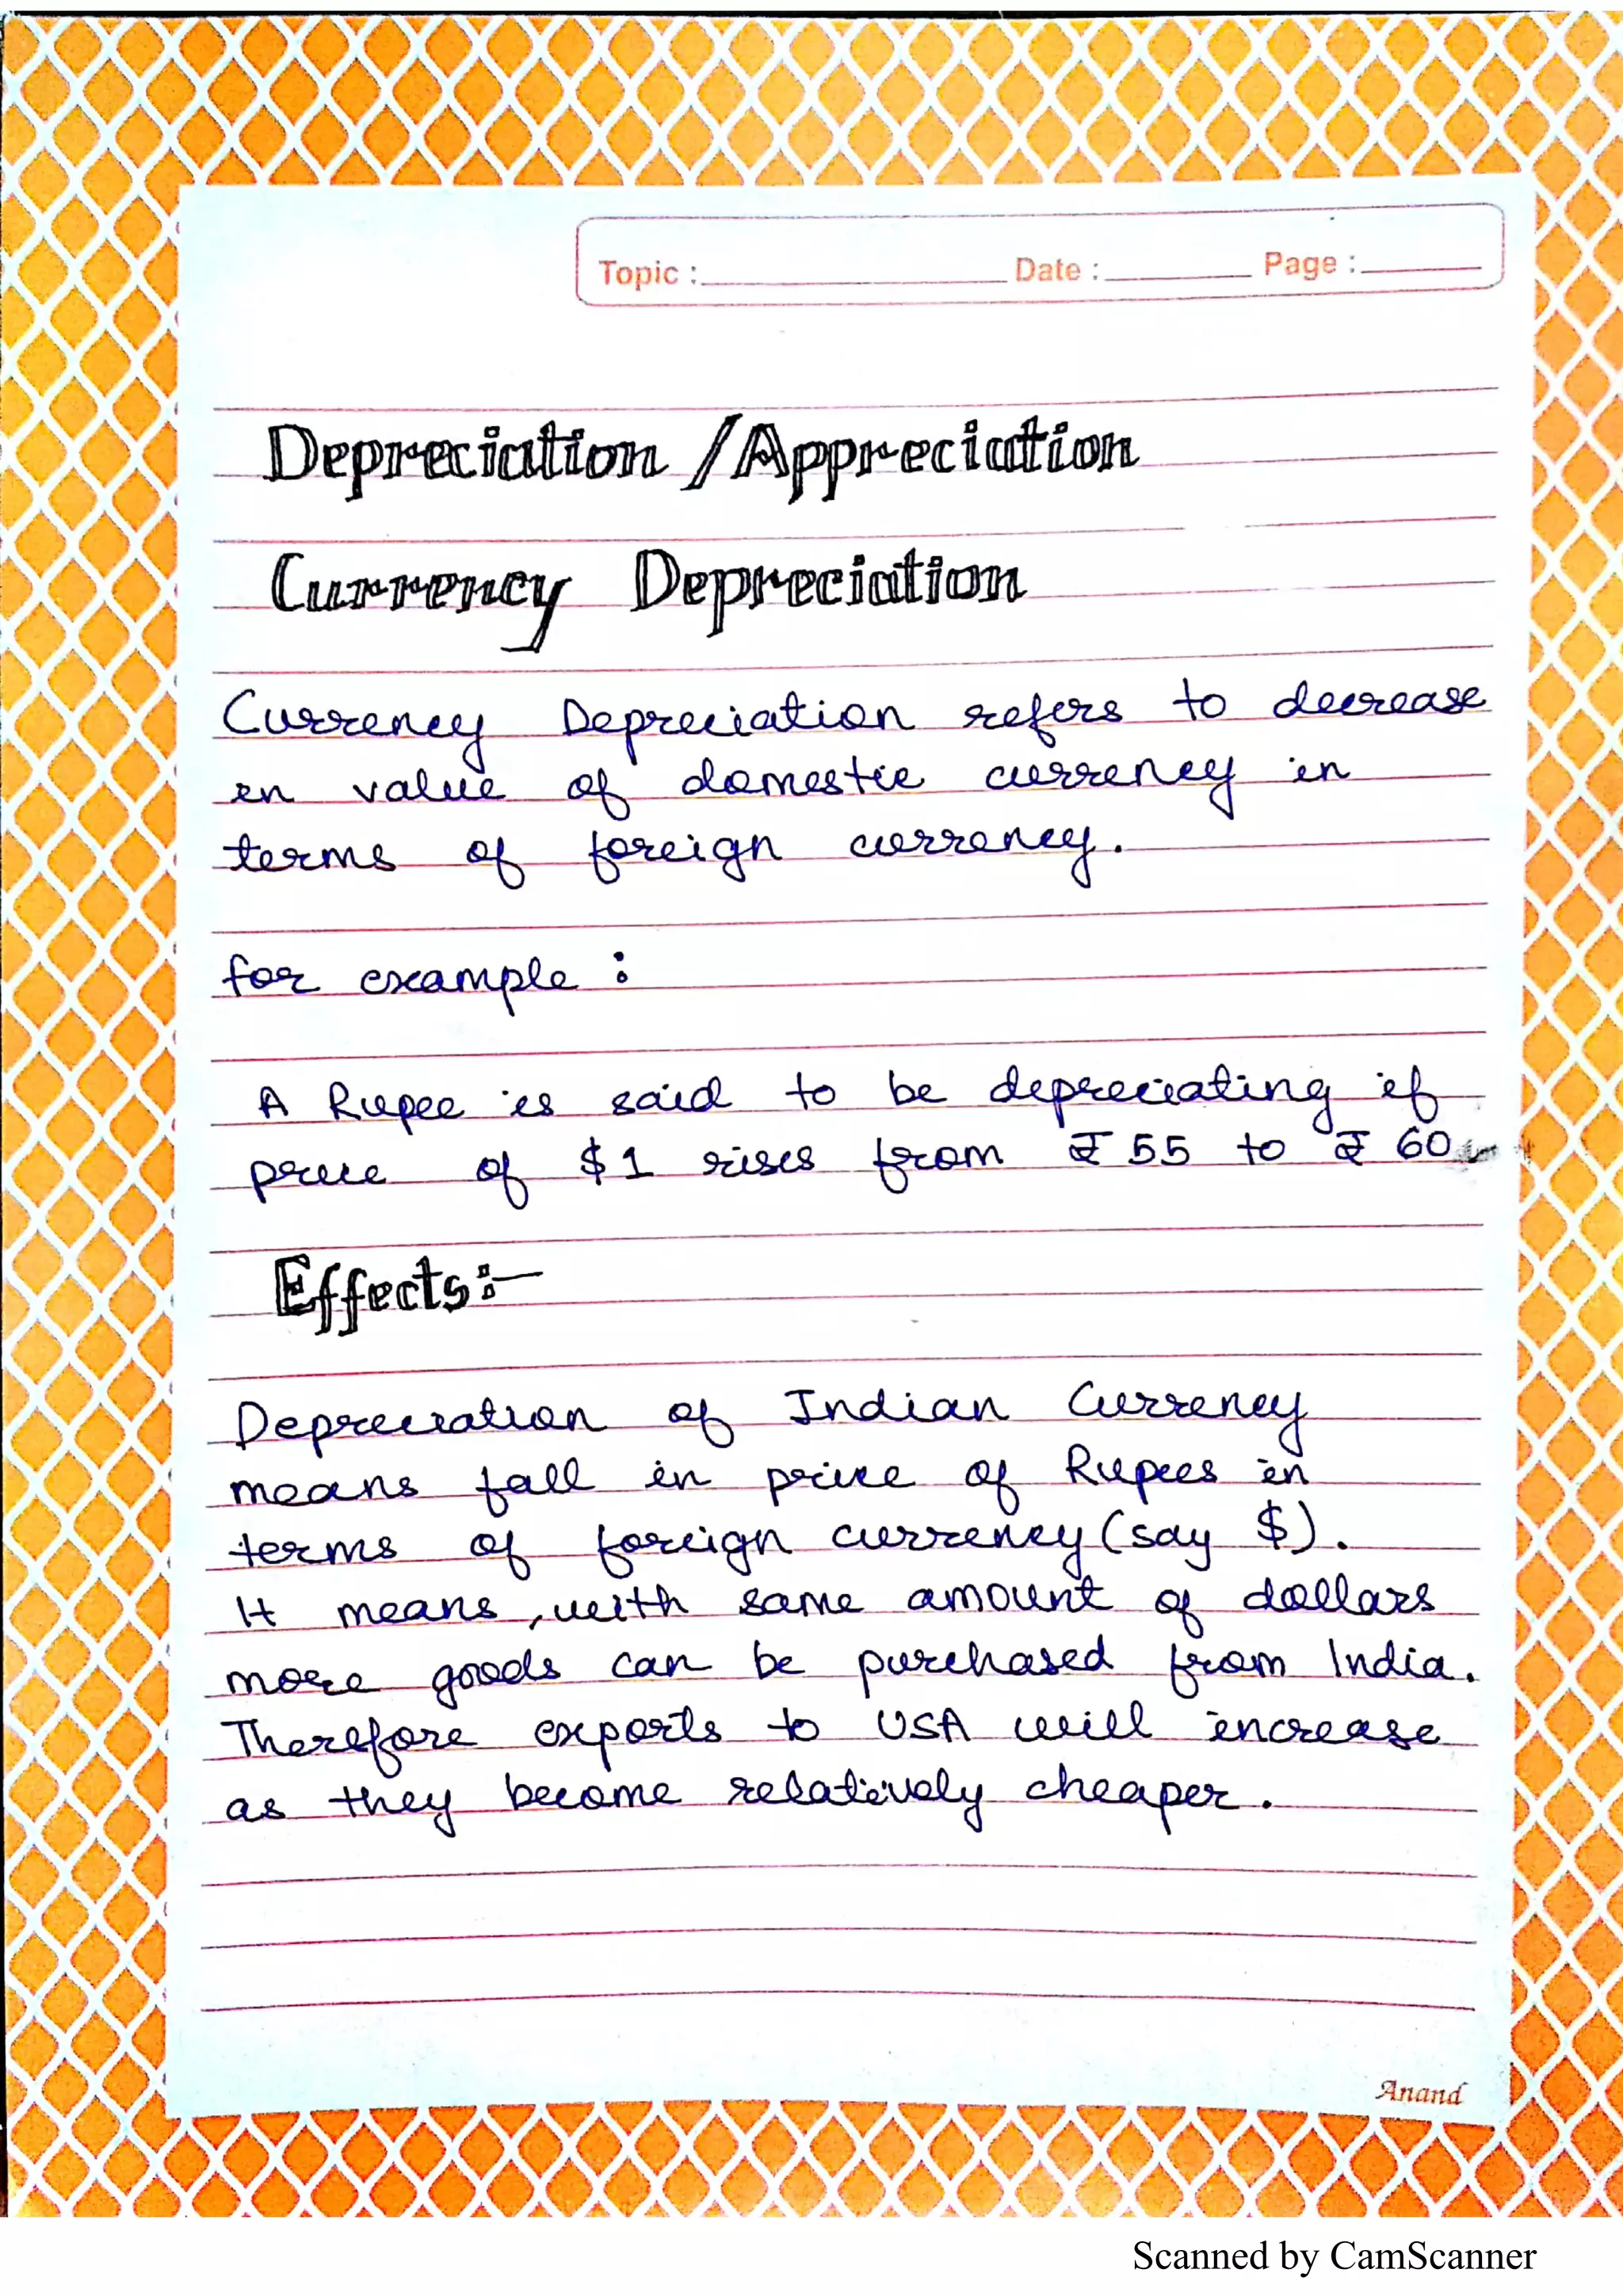 Topic : Date : Page :
Depreciation / Appreciation
Currency Depreciation
Currency Depreciation refers to decrease
in value of domestic currency in
terms of foreign currency.
for example :
A Rupee is said to be depreciating if
price of $1 rises from ₹ 55 to ₹ 60
Effects:-
Depreciation of Indian Currency
means fall in price of Rupees in
terms of foreign currency (say $).
It means, with same amount of dollars
more goods can be purchased from India.
Therefore exports to USA will increase
as they become relatively cheaper.
Anand
Scanned by CamScanner